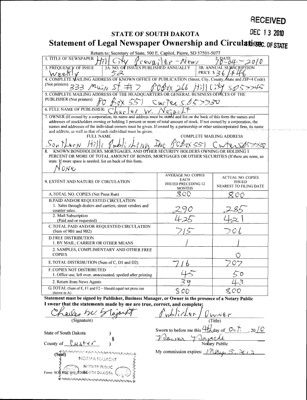 RECEIVED
DEC 13 2010
SEC. OF STATE
STATE OF SOUTH DAKOTA
Statement of Legal Newspaper Ownership and Circulation
Return to: Secretary of State, 500 E. Capitol, Pierre, SD 57501-5077
1. TITLE OF NEWSPAPER Hill City Prevailer-News
2. DATE
2010
3. FREQUENCY OF ISSUE Weekly
3A. NO. OF ISSUES PUBLISHED ANNUALLY 52
3B. ANNUAL SUBSCRIPTION PRICE $36/$46
4. COMPLETE MAILING ADDRESS OF KNOWN OFFICE OF PUBLICATION (Street, City, County, State and ZIP+4 Code) (Not printers)
333 Main St #7 PO Box 266 Hill City SD 57745
5. COMPLETE MAILING ADDRESS OF THE HEADQUARTERS OF GENERAL BUSINESS OFFICES OF THE PUBLISHER (Not printer)
PO Box 551 Custer SD 57730
6. FULL NAME OF PUBLISHER: Charles W. Najacht
7. OWNER (If owned by a corporation, its name and address must be stated and list on the back of this form the names and addresses of stockholders owning or holding 1 percent or more of total amount of stock. If not owned by a corporation, the names and addresses of the individual owners must be given. If owned by a partnership or other unincorporated firm, its name and address, as well as that of each individual must be given.
FULL NAME COMPLETE MAILING ADDRESS
Southern Hills Publishing Inc PO Box 551 Custer SD 57730
8. KNOWN BONDHOLDERS, MORTGAGEES, AND OTHER SECURITY HOLDERS OWNING OR HOLDING 1 PERCENT OR MORE OF TOTAL AMOUNT OF BONDS, MORTGAGES OR OTHER SECURITIES (If there are none, so state. If more space is needed, list on back of this form.
None
9. EXTENT AND NATURE OF CIRCULATION
AVERAGE NO. COPIES EACH ISSUED PRECEDING 12 MONTHS
ACTUAL NO. COPIES ISSUED NEAREST TO FILING DATE
A. TOTAL NO. COPIES (Net Press Run) 800 800
B. PAID AND/OR REQUESTED CIRCULATION
1. Sales through dealers and carriers, street vendors and counter sales. 290 285
2. Mail Subscription (Paid and or requested) 425 421
C. TOTAL PAID AND/OR REQUESTED CIRCULATION (Sum of 9B1 and 9B2) 715 706
D. FREE DISTRIBUTION
1. BY MAIL, CARRIER OR OTHER MEANS 1
2. SAMPLES, COMPLIMENTARY AND OTHER FREE COPIES 0
E. TOTAL DISTRIBUTION (Sum of C, D1 and D2) 716 707
F. COPIES NOT DISTRIBUTED
1. Office use, left over, unaccounted, spoiled after printing 45 50
2. Return from News Agents 39 43
G. TOTAL (Sum of E, F1 and F2 - Should equal net press run shown in A) 800 800
Statement must be signed by Publisher, Business Manager, or Owner in the presence of a Notary Public
I swear that the statements made by me are true, correct, and complete:
Charles W Najacht Publisher/Owner
(Signature) (Title)
State of South Dakota )
Sworn to before me this 4th day of Oct 2010
County of Custer )
Notary Public
(Seal) My commission expires:
NOTARY PUBLIC
SOUTH DAKOTA